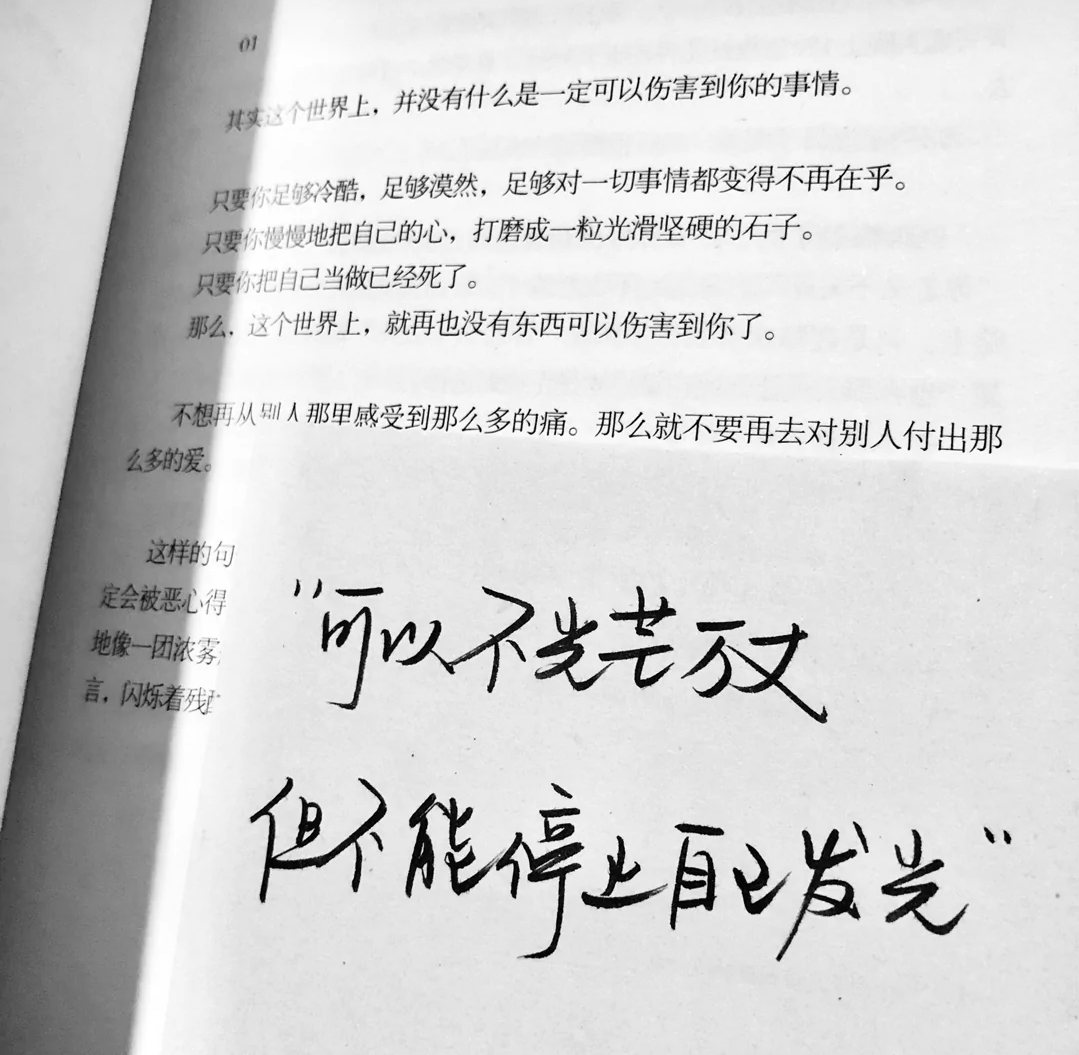 01
其实这个世界上，并没有什么是一定可以伤害到你的事情。
只要你足够冷酷，足够漠然，足够对一切事情都变得不再在乎。
只要你慢慢地把自己的心，打磨成一粒光滑坚硬的石子。
只要你把自己当做已经死了。
那么，这个世界上，就再也没有东西可以伤害到你了。
不想再从别人那里感受到那么多的痛。那么就不要再去对别人付出那
么多的爱。
这样的句
定会被恶心得
地像一团浓雾
言，闪烁着残
"可以不光芒万丈
但不能停止自己发光"